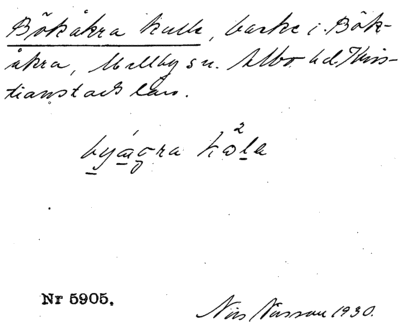 Bökåkra kulle, backe i Bök-
åkra, Mellby sn. Albo hd. Kris-
tianstads län.
Nr 5905.
Nils Nilsson 1930.